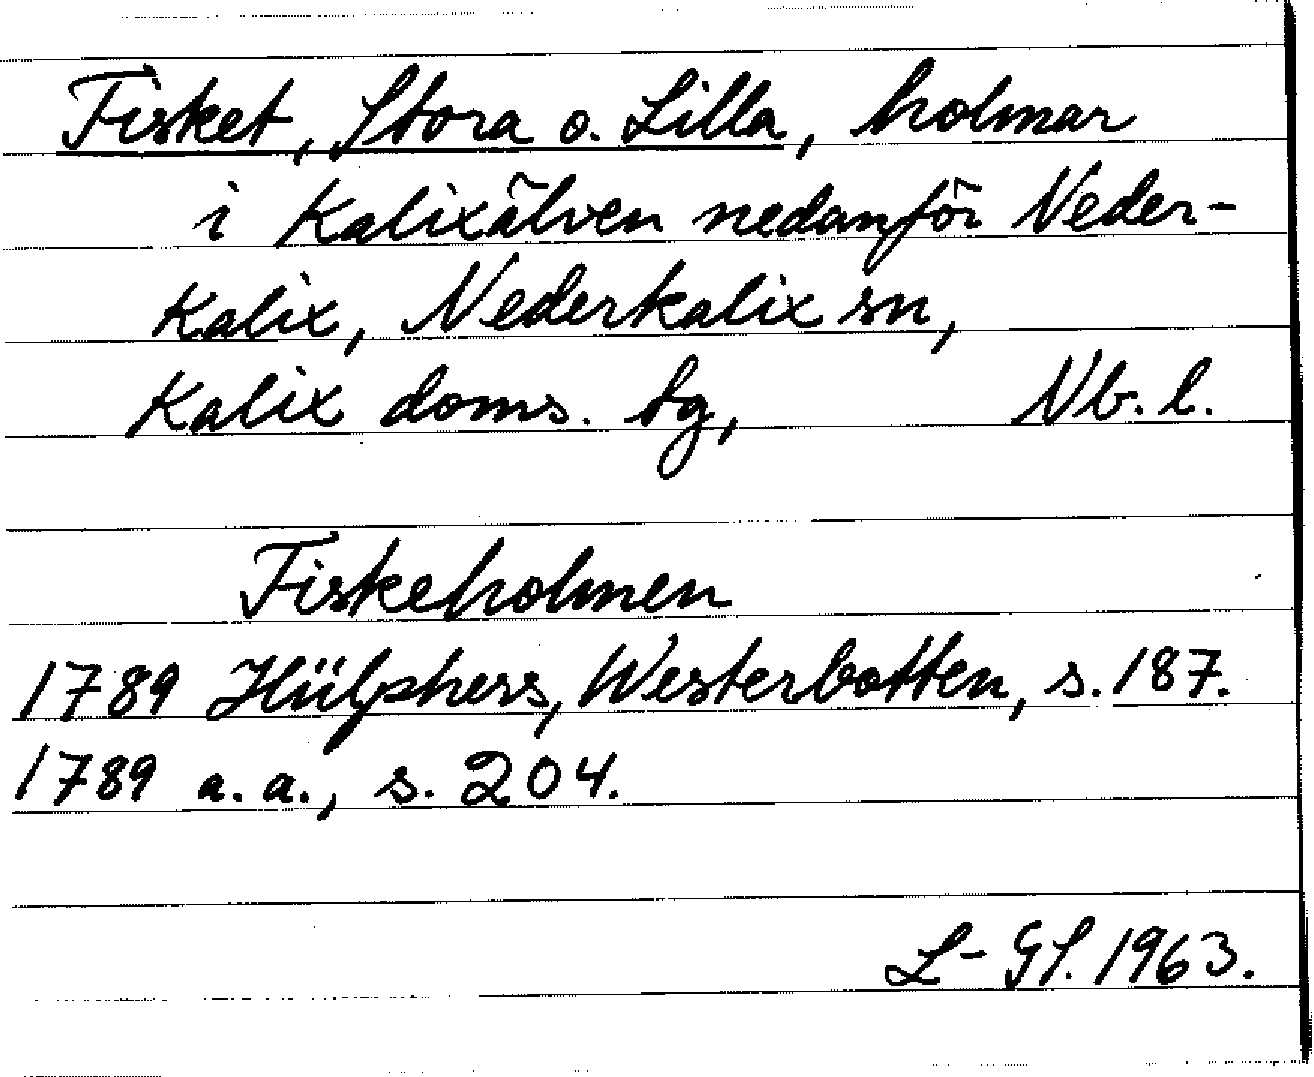 Fisket, Stora o. Lilla, holmar
i Kalixälven nedanför Neder-
kalix, Nederkalix sn,
Kalix doms. tg, Nb. l.
Fiskeholmen
1789 Hülphers, Westerbotten, s. 187.
1789 a. a., s. 204.
L-GS. 1963.